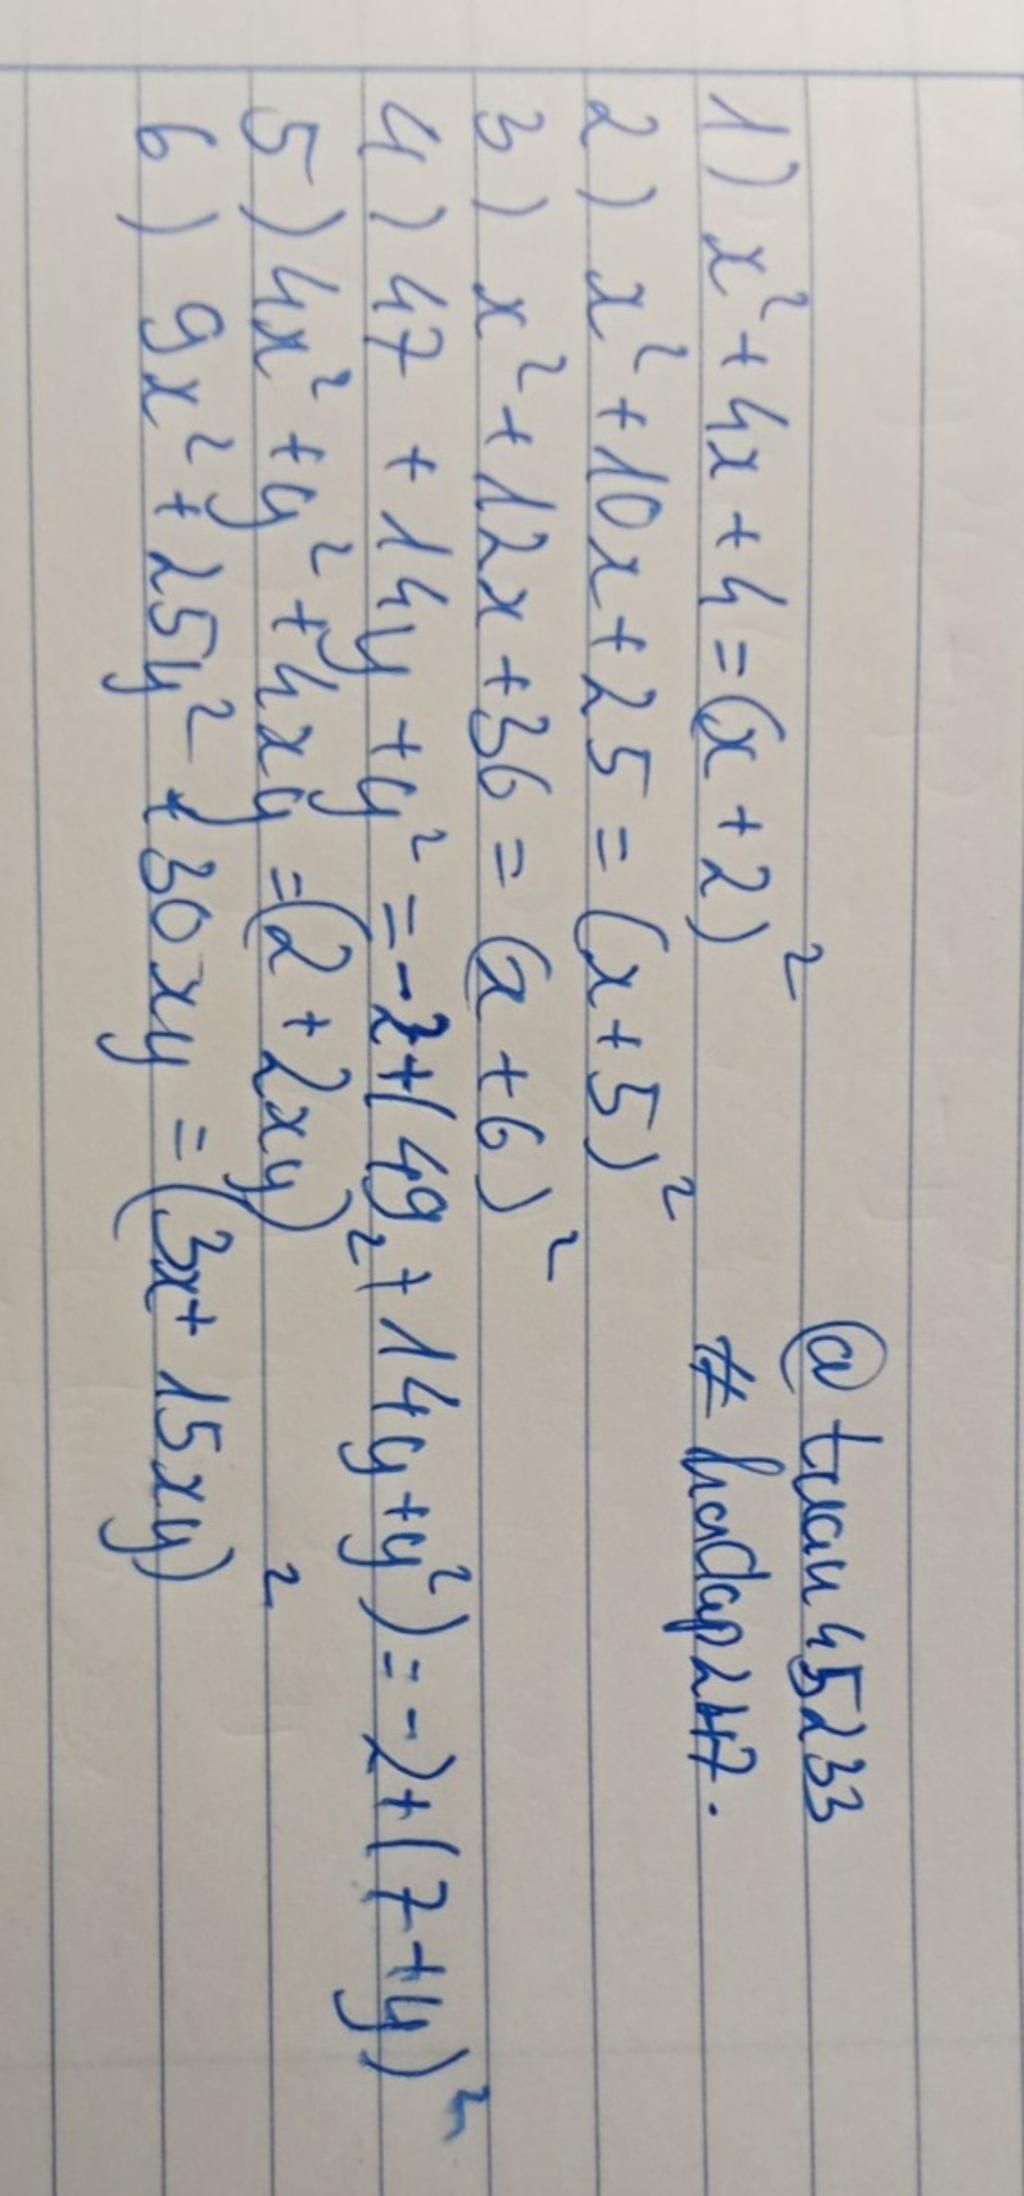 @ tuan45233
# hoidap247.
1) x² + 4x + 4 = (x + 2)²
2) x² + 10x + 25 = (x + 5)²
3) x² + 12x + 36 = (a + 6)²
4) 47 + 14y + y² = -2 + (49 + 14y + y²) = -2 + (7 + y)²
5) 4x² + y² + 4xy = (2 + 2xy)²
6) 9x² + 25y² + 30xy = (3x + 15xy)²